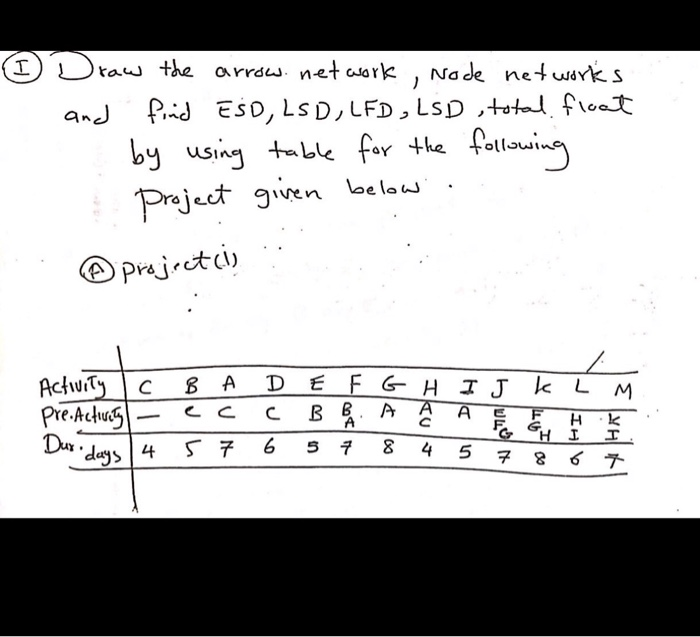 I Draw the arrow network, Node networks
and find ESD, LSD, LFD, LSD, total float
by using table for the following
project given below.
A project(1)
Activity C B A D E F G H I J K L M
Pre.Activity — C C C B B A A A C A E F G F G H H I K I
Dur. days 4 5 7 6 5 7 8 4 5 7 8 6 7